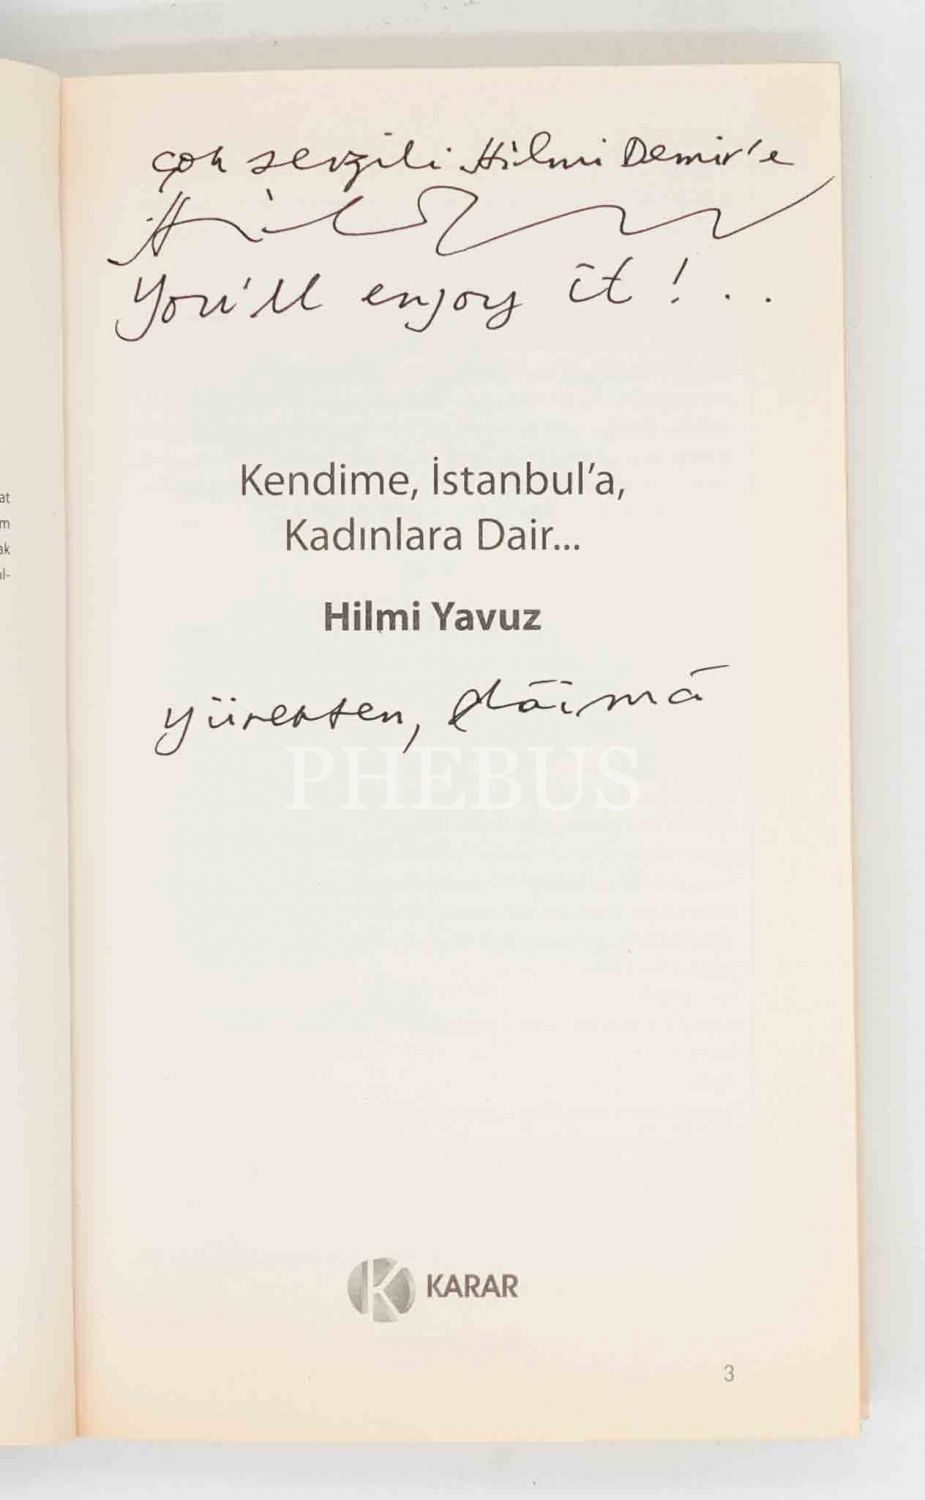 çok sevgili Hilmi Demir'e
You'll enjoy it! . .
at
m
ak
al-
Kendime, İstanbul'a,
Kadınlara Dair...
Hilmi Yavuz
yürekten, dāimā
PHEBUS
K KARAR
3